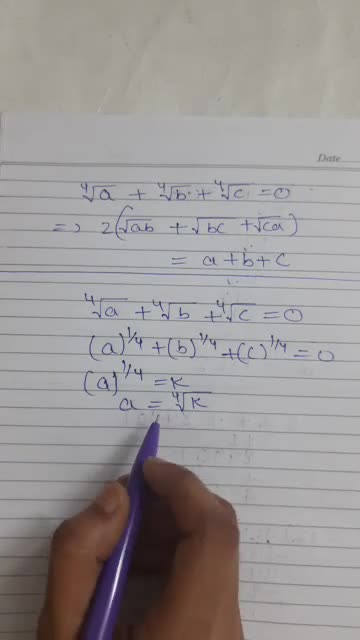 Date
∜a + ∜b + ∜c = 0
=> 2(√ab + √bc + √ca)
= a+b+c
∜a + ∜b + ∜c = 0
(a)^1/4 + (b)^1/4 + (c)^1/4 = 0
(a)^1/4 = K
a = ∜K